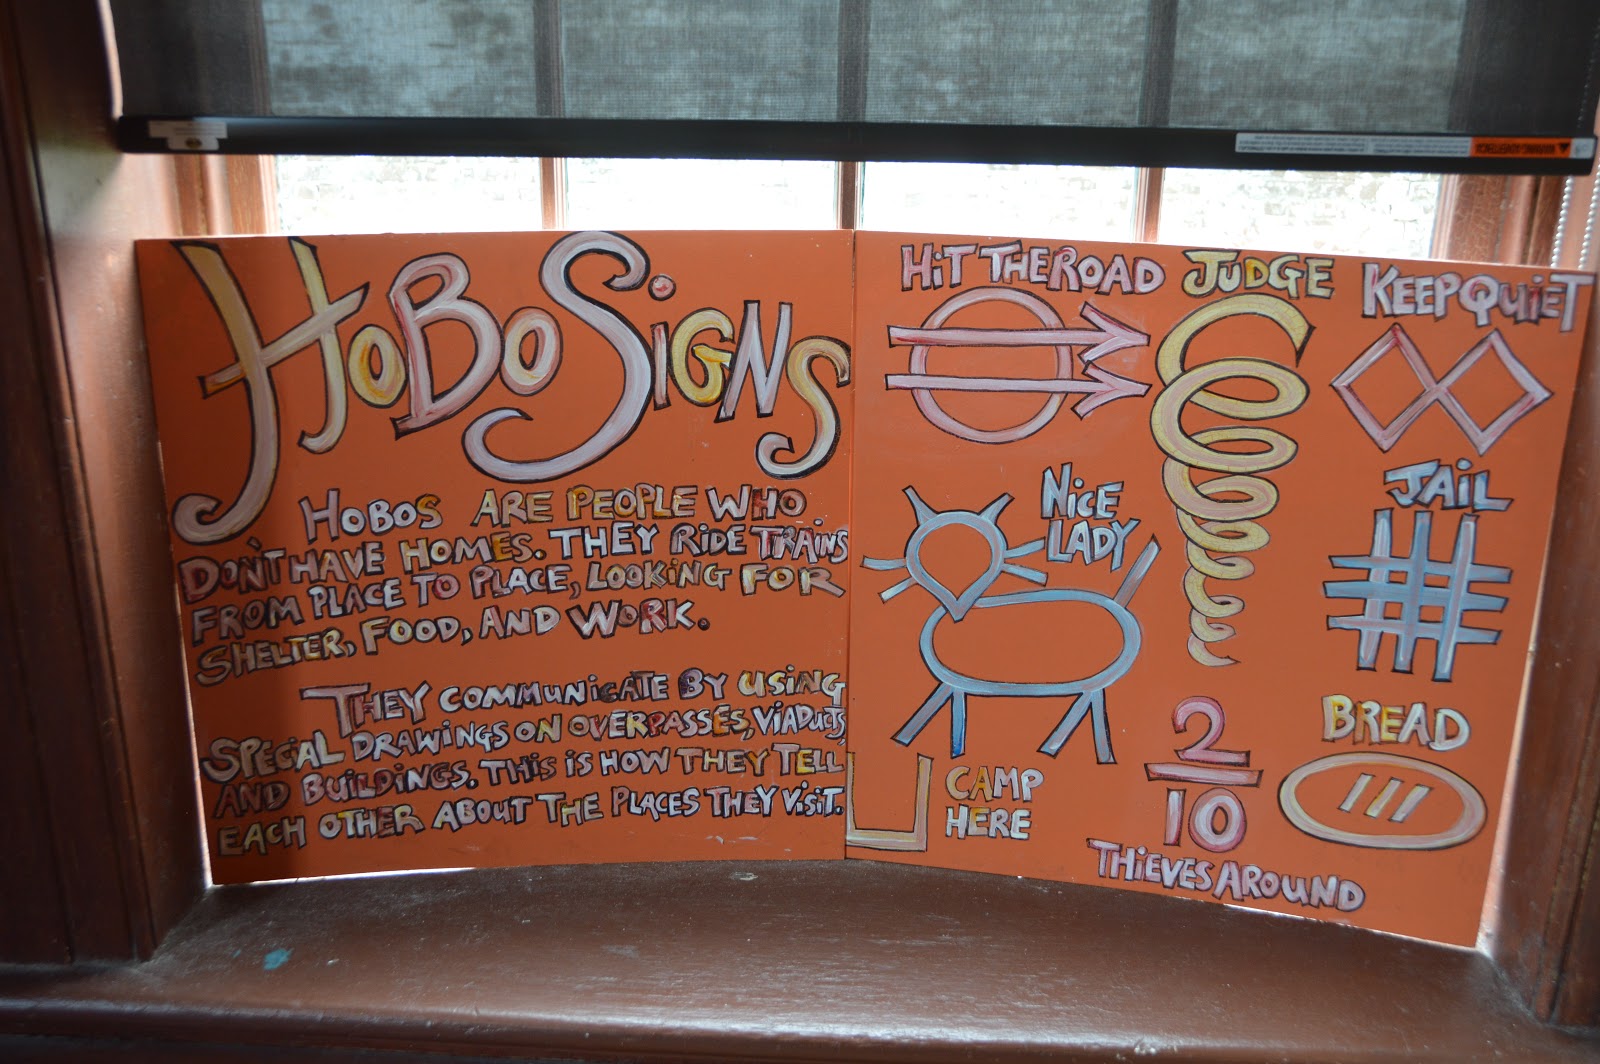 HOBO SIGNS
HOBOS ARE PEOPLE WHO
DON'T HAVE HOMES. THEY RIDE TRAINS
FROM PLACE TO PLACE, LOOKING FOR
SHELTER, FOOD, AND WORK.
THEY COMMUNICATE BY USING
SPECIAL DRAWINGS ON OVERPASSES, VIADUCTS,
AND BUILDINGS. THIS IS HOW THEY TELL
EACH OTHER ABOUT THE PLACES THEY VISIT.
HIT THE ROAD
JUDGE
KEEP QUIET
NICE
LADY
JAIL
CAMP
HERE
2
10
THIEVES AROUND
BREAD